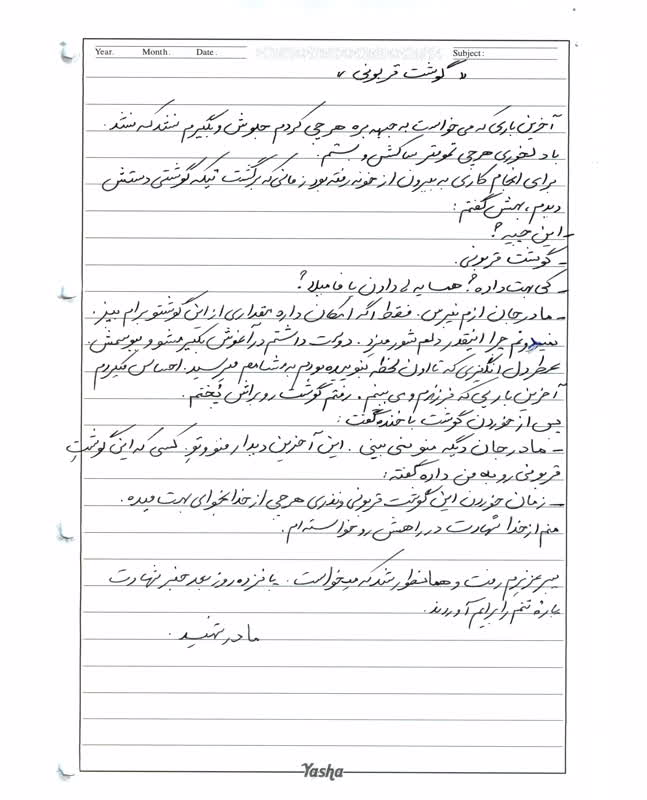 Year. Month. Date. Subject:
« گوشت قربونی »
آخرین باری که می‌خواست به جبهه بره هر چی کردم جلوش و بگیرم نشد که نشد.
با دلخوری هر چی تمومتر ساکش و بستم.
برای انجام کاری به بیرون از خونه رفته بود زمانی که برگشت تیکه گوشتی دستش
دیدم، بهش گفتم:
- این چیه؟
- گوشت قربونی.
- کی بهت داده؟ همسایه‌ها دادن یا فامیلا؟
- مادر جان ازم نپرس. فقط اگه امکان داره مقداری از این گوشتو برام بپز.
نمیدونم چرا اینقدر دلم شور میزد. دوست داشتم در آغوش بگیرمش و ببوسمش.
عطر دل انگیزی که تا اون لحظه نبوییده بودم به مشامم میرسید. احساس میکردم
آخرین باریکه فرزندم و می بینم. رفتم گوشت رو براش پُختم.
پس از خوردن گوشت با خنده گفت:
- مادر جان دیگه منو نمی بینی. این آخرین دیدار منو و تو. کسی که این گوشتِ
قربونی رو به من داده گفته:
- زمان خوردن این گوشت قربونی و نذری هر چی از خدا بخوای بهت میده.
منم از خدا شهادت در راهش رو خواسته‌ام.
پسر عزیزم رفت و همانطور شد که میخواست. پانزده روز بعد خبر شهادت
پاره تنم را برایم آوردند.
مادر شهید.
Yasha